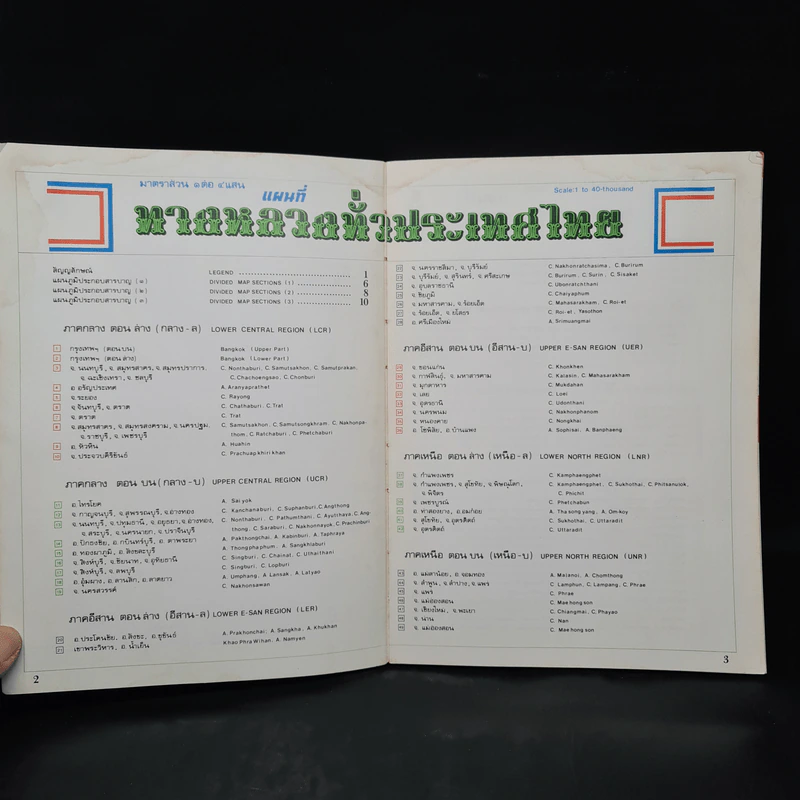 มาตราส่วน ๑ ต่อ ๔ แสน
Scale:1 to 40-thousand
แผนที่
ทางหลวงทั่วประเทศไทย
สัญญลักษณ์ LEGEND 1
แผนภูมิประกอบสารบาญ (๑) DIVIDED MAP SECTIONS (1) 6
แผนภูมิประกอบสารบาญ (๒) DIVIDED MAP SECTIONS (2) 8
แผนภูมิประกอบสารบาญ (๓) DIVIDED MAP SECTIONS (3) 10
ภาคกลาง ตอน ล่าง (กลาง-ล) LOWER CENTRAL REGION (LCR)
1 กรุงเทพฯ (ตอนบน) Bangkok (Upper Part)
2 กรุงเทพฯ (ตอนล่าง) Bangkok (Lower Part)
3 จ. นนทบุรี, จ. สมุทรสาคร, จ. สมุทรปราการ, C. Nonthaburi, C. Samutsakhon, C. Samutprakan,
จ. ฉะเชิงเทรา, จ. ชลบุรี C. Chachoengsao, C. Chonburi
4 อ. อรัญประเทศ A. Aranyaprathet
5 จ. ระยอง C. Rayong
6 จ. จันทบุรี, จ. ตราด C. Chathaburi, C. Trat
7 จ. ตราด C. Trat
8 จ. สมุทรสาคร, จ. สมุทรสงคราม, จ. นครปฐม, C. Samutsakhon, C. Samutsongkhram, C. Nakhonpa-
จ. ราชบุรี, จ. เพชรบุรี thom, C. Ratchaburi, C. Phetchaburi
9 อ. หัวหิน A. Huahin
10 จ. ประจวบคีรีขันธ์ C. Prachuap khiri khan
ภาคกลาง ตอน บน (กลาง-บ) UPPER CENTRAL REGION (UCR)
11 อ. ไทรโยค A. Sai yok
12 จ. กาญจนบุรี, จ. สุพรรณบุรี, จ. อ่างทอง C. Kanchanaburi, C. Suphanburi, C. Angthong
13 จ. นนทบุรี, จ. ปทุมธานี, จ. อยุธยา, จ. อ่างทอง, C. Nonthaburi, C. Pathumthani, C. Ayutthaya, C. Ang-
จ. สระบุรี, จ. นครนายก, จ. ปราจีนบุรี thong, C. Saraburi, C. Nakhonnayok, C. Prachinburi
14 อ. ปักธงชัย, อ. กบินทร์บุรี, อ. ตาพระยา A. Pakthongchai, A. Kabinburi, A. Taphraya
15 อ. ทองผาภูมิ, อ. สังขละบุรี A. Thongphaphum, A. Sangkhlaburi
16 จ. สิงห์บุรี, จ. ชัยนาท, จ. อุทัยธานี C. Singburi, C. Chainat, C. Uthaithani
17 จ. สิงห์บุรี, จ. ลพบุรี C. Singburi, C. Lopburi
18 อ. อุ้มผาง, อ. ลานสัก, อ. ลาดยาว A. Umphang, A. Lansak, A. Latyao
19 จ. นครสวรรค์ C. Nakhonsawan
ภาคอีสาน ตอน ล่าง (อีสาน-ล) LOWER E-SAN REGION (LER)
20 อ. ประโคนชัย, อ. สังขะ, อ. ขุขันธ์ A. Prakhonchai, A. Sangkha, A. Khukhan
21 เขาพระวิหาร, อ. น้ำยืน Khao Phra Wihan, A. Namyen
2
22 จ. นครราชสีมา, จ. บุรีรัมย์ C. Nakhonratchasima, C. Burirum
23 จ. บุรีรัมย์, จ. สุรินทร์, จ. ศรีสะเกษ C. Burirum, C. Surin, C. Sisaket
24 จ. อุบลราชธานี C. Ubonratchthani
25 จ. ชัยภูมิ C. Chaiyaphum
26 จ. มหาสารคาม, จ. ร้อยเอ็ด C. Mahasarakham, C. Roi-et
27 จ. ร้อยเอ็ด, จ. ยโสธร C. Roi-et, Yesothon
28 อ. ศรีเมืองใหม่ A. Srimuangmai
ภาคอีสาน ตอน บน (อีสาน-บ) UPPER E-SAN REGION (UER)
29 จ. ขอนแก่น C. Khonkhen
30 จ. กาฬสินธุ์, จ. มหาสารคาม C. Kalasin, C. Mahasarakham
31 จ. มุกดาหาร C. Mukdahan
32 จ. เลย C. Loei
33 จ. อุดรธานี C. Udonthani
34 จ. นครพนม C. Nakhonphanom
35 จ. หนองคาย C. Nongkhai
36 อ. โซ่พิสัย, อ. บ้านแพง A. Sophisai, A. Banphaeng
ภาคเหนือ ตอน ล่าง (เหนือ-ล) LOWER NORTH REGION (LNR)
37 จ. กำแพงเพชร C. Kamphaengphet
38 จ. กำแพงเพชร, จ. สุโขทัย, จ. พิษณุโลก, C. Kamphaengphet, C. Sukhothai, C. Phitsenulok,
จ. พิจิตร C. Phichit
39 จ. เพชรบูรณ์ C. Phetchabun
40 อ. ท่าสองยาง, อ. อมก๋อย A. Tha song yang, A. Omkoy
41 จ. สุโขทัย, จ. อุตรดิตถ์ C. Sukhothai, C. Uttaradit
42 จ. อุตรดิตถ์ C. Uttaradit
ภาคเหนือ ตอน บน (เหนือ-บ) UPPER NORTH REGION (UNR)
43 อ. แม่ลาน้อย, อ. จอมทอง A. Malanoi, A. Chomthong
44 จ. ลำพูน, จ. ลำปาง, จ. แพร่ C. Lamphun, C. Lampang, C. Phrae
45 จ. แพร่ C. Phrae
46 จ. แม่ฮ่องสอน C. Mae hong son
47 จ. เชียงใหม่, จ. พะเยา C. Chiangmai, C. Phayao
48 จ. น่าน C. Nan
49 จ. แม่ฮ่องสอน C. Mae hong son
3